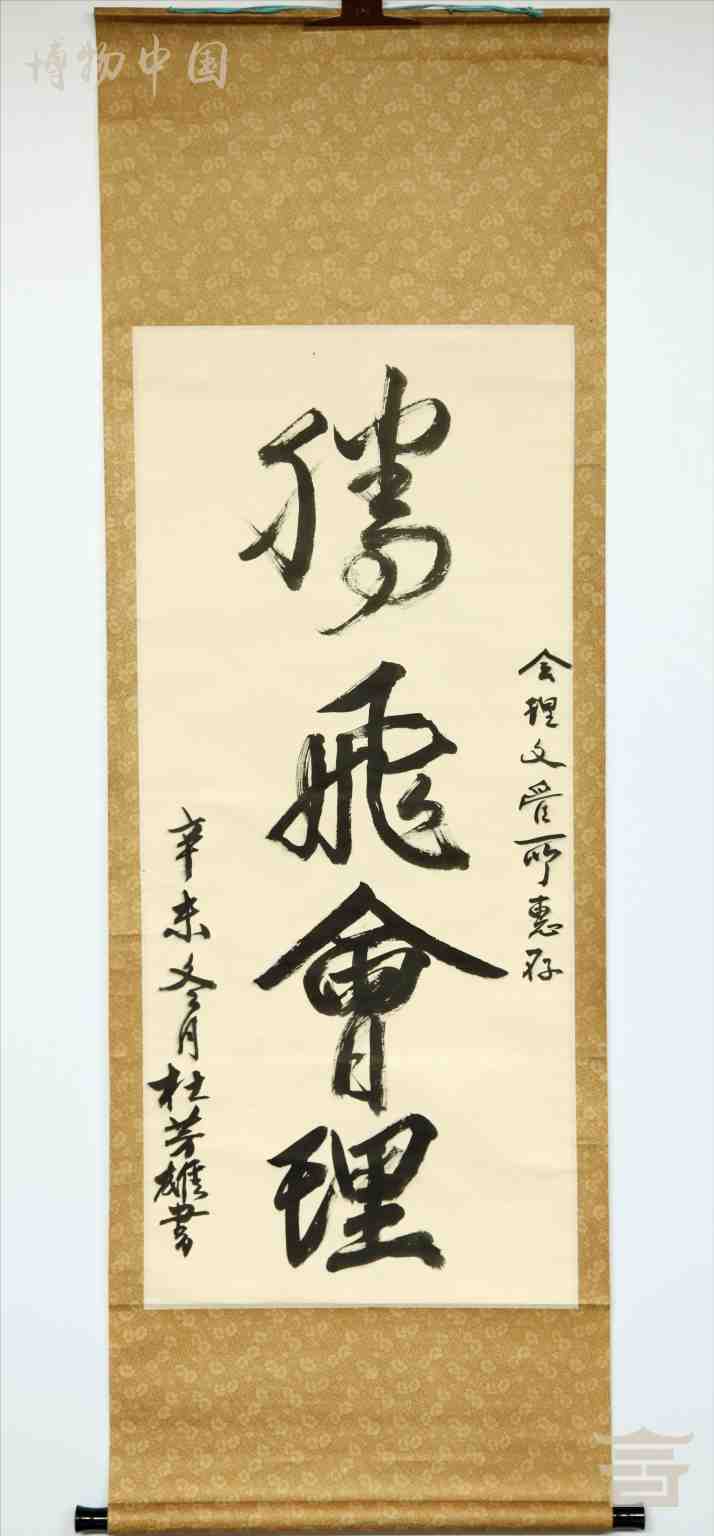 博物中国
会理文管所惠存
腾飛會理
辛未冬月杜芳雄書